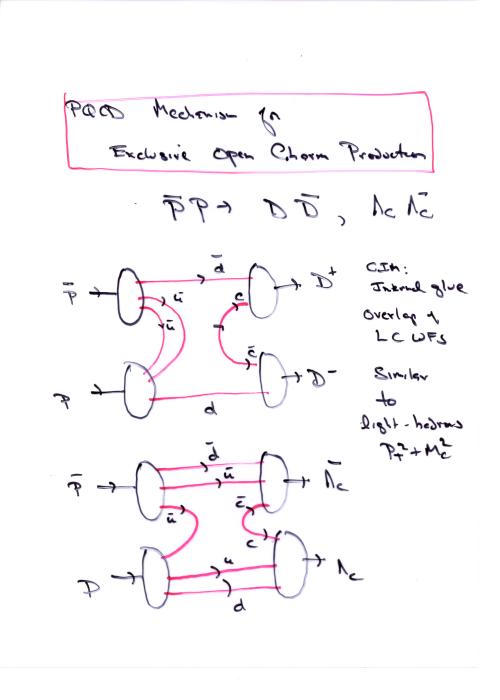 PQCD Mechanism for
Exclusive Open Charm Production
p̄ p → D D̄ , Λc Λ̄c
d̄
p̄ → ū c → D⁺
ū
c̄
p → → D⁻
d
CIM:
Internal glue
Overlap of
LC WFS
Similar
to
light-hadrons
P_T² + M_c²
d̄
p̄ → ū → Λ̄c
ū c̄
c
p → u → Λc
d